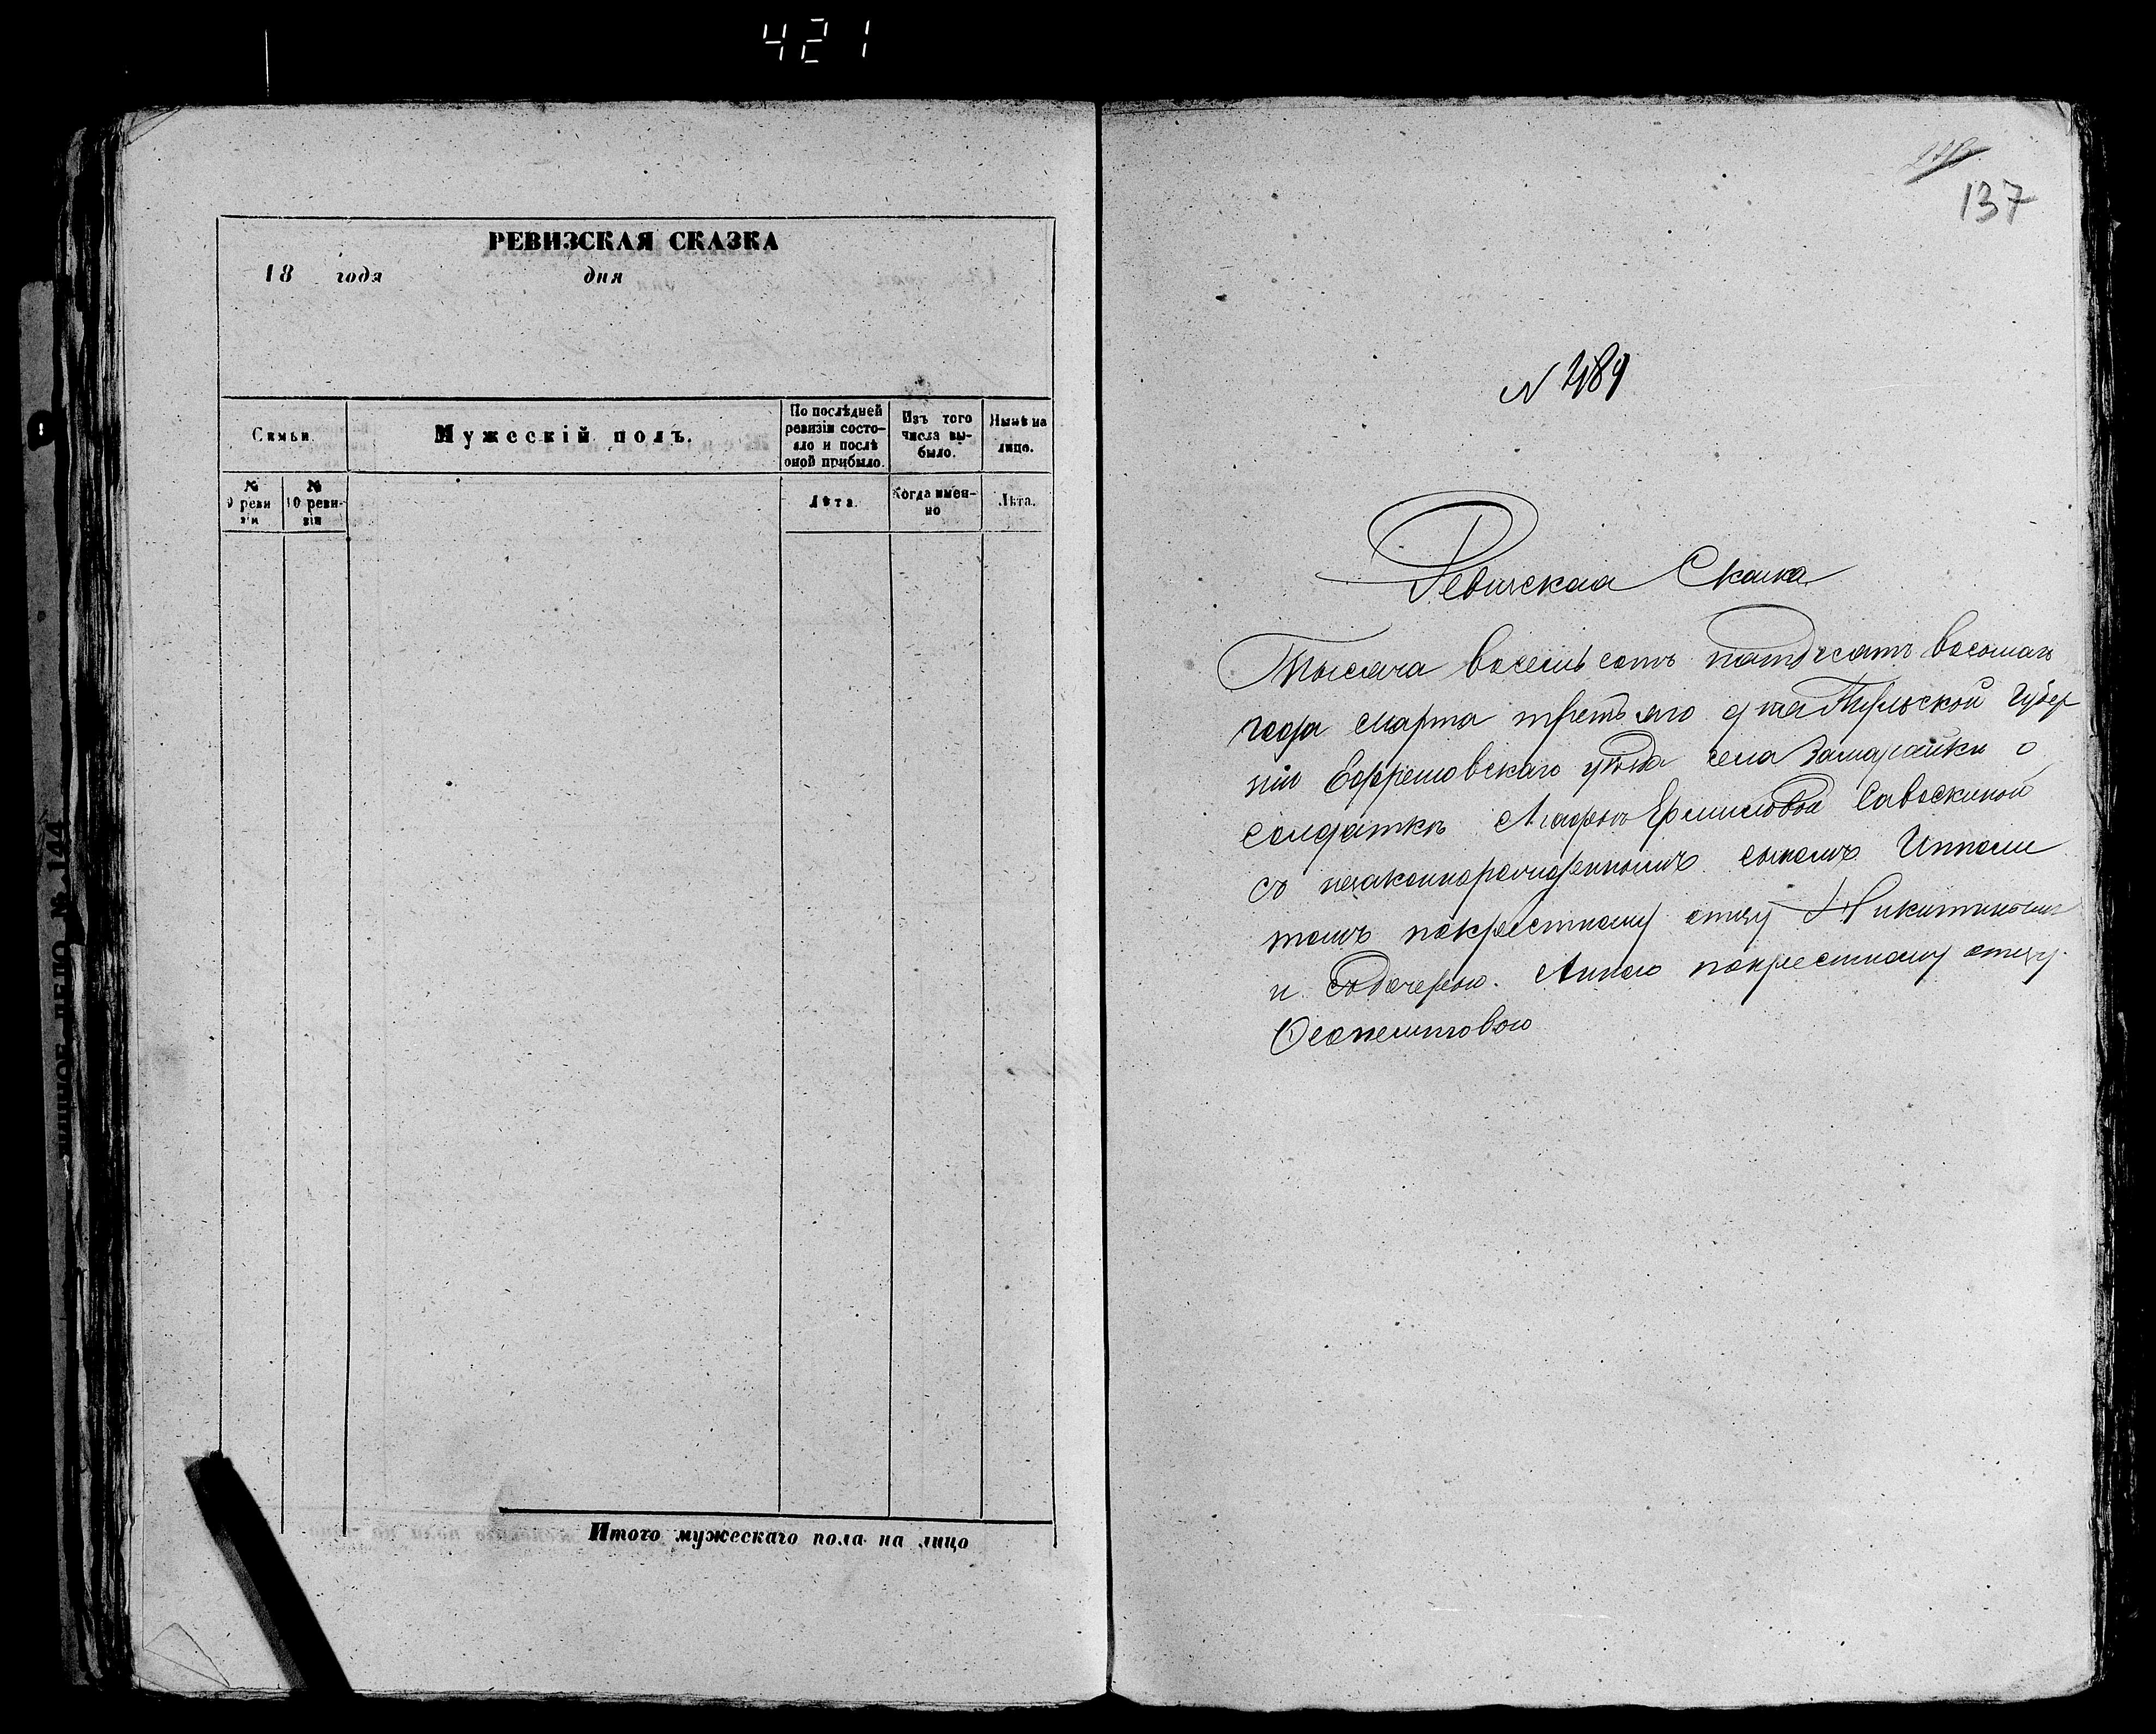 421
РЕВИЗСКАЯ СКАЗКА
18 года дня
Семьи
Мужескій полъ.
По послѣдней ревизіи состояло и послѣ оной прибыло.
Изъ того числа выбыло.
Нынѣ на лицо.
№ 9 ревизіи
№ 10 ревизіи
Лѣта.
Когда именно
Лѣта.
Итого мужескаго пола на лицо
№ 144
137
N 489
Ревизская Сказка
Тысяча восемь сотъ пятдесятъ восьмаго
года марта третьяго дня Тульской Губер
ніи Ефремовскаго уѣзда села Замарайки о
солдаткѣ Ермиловой Савоскиной
съ незаконнорожденнымъ сыномъ Иппали
томъ покрестному отцу Никитинымъ
и съ дочерью. Анною покрестному отцу